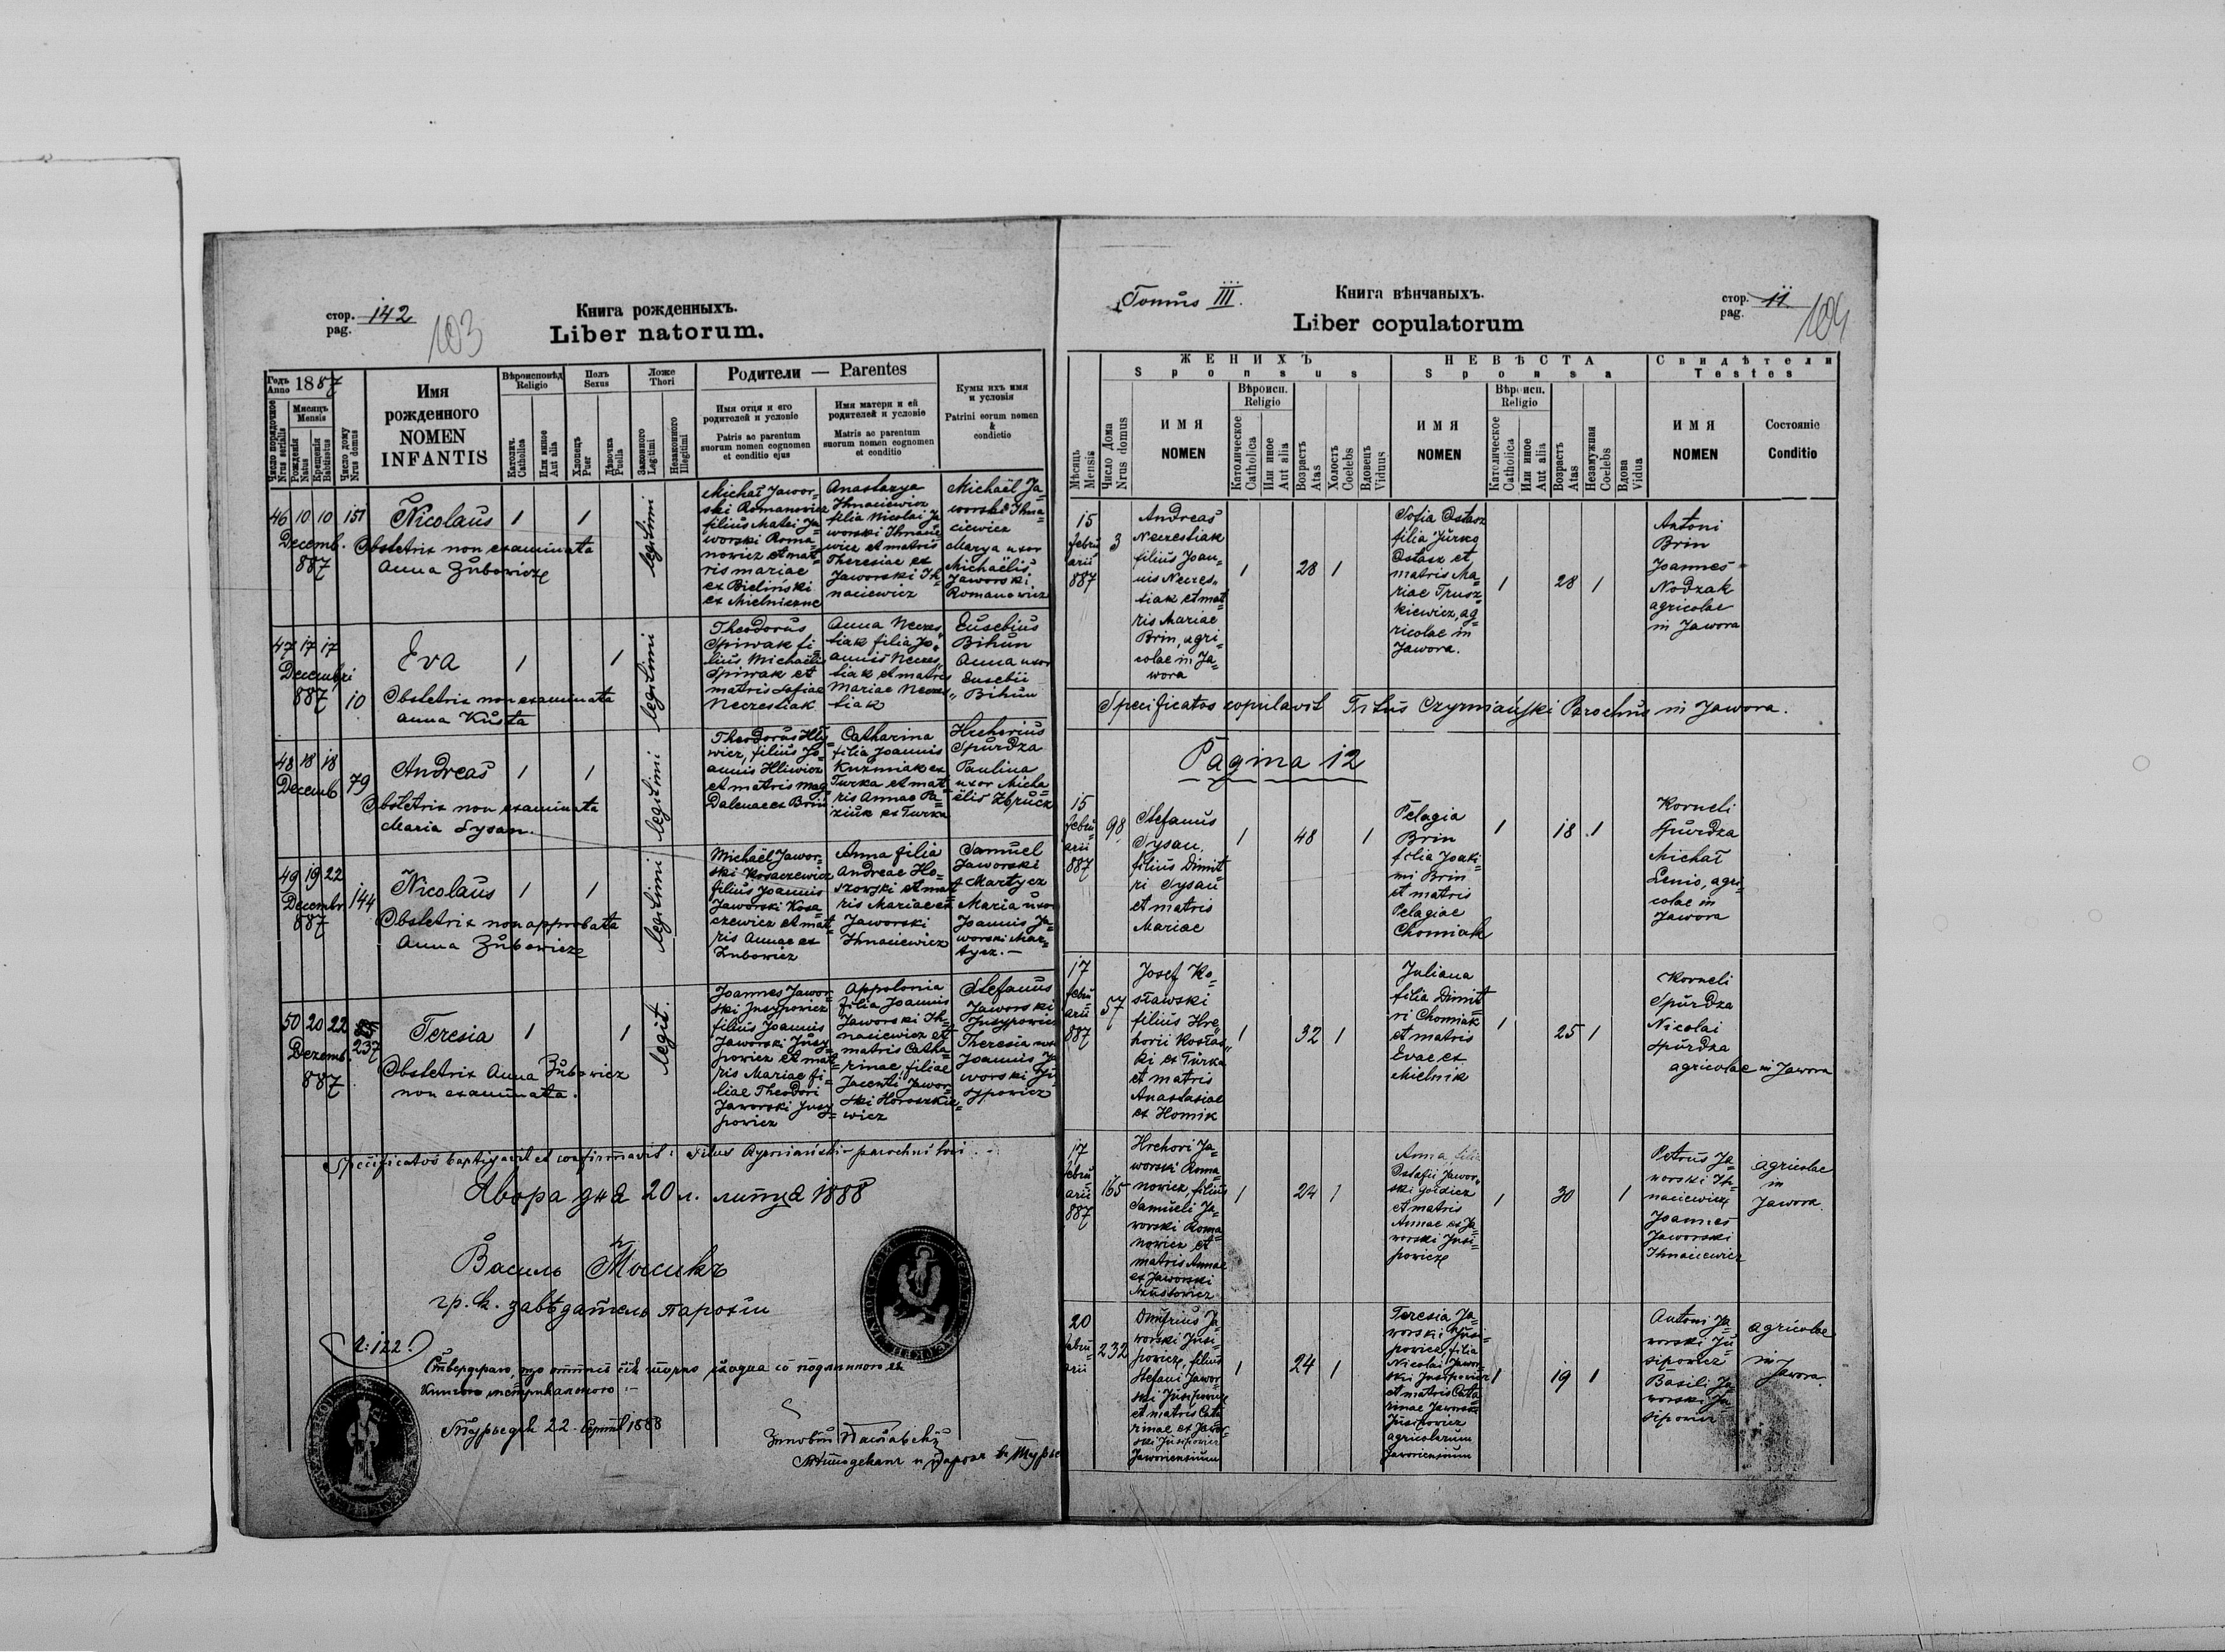 стор. 142
pag.
103
Книга рожденныхъ.
Liber natorum.
Годъ 1887
Anno
Число порядочное
Nrus serialis
Мѣсяць
Mensis
Рожденія
Natus
Крещенія
Babtisatus
Число дому
Nrus domus
Имя
рожденного
NOMEN
INFANTIS
Вѣроисповѣд
Religio
Католич.
Catholica
Или иное
Aut alia
Полъ
Sexus
Хлопець
Puer
Дѣвочка
Puella
Ложе
Thori
Законного
Legitimi
Незаконного
Illegitimi
Родители — Parentes
Имя отця и его
родителей и условіе
Patris ac parentum
suorum nomen cognomen
et conditio ejus
Имя матери и ей
родителей и условіе
Matris ac parentum
suorum nomen cognomen
et conditio
Кумы ихъ имя
и условія
Patrini eorum nomen
&
condictio
46 10 10 151
Decemb.
887
Nicolaus 1 1
Obstetrix non examinata
Anna Zubowicz
legitimi
Michał Jawor=
ski Romanowicz
filius Matei Ja=
worski Roma=
nowicz et mat=
ris mariae
ex Bieliński
ex Mielniczne
Anastazya
Ihnaciewicz
filia Nicolai Ja
worski Ihnacie
wicz et matris
Theresiae ex
Jaworski Ih=
naciewicz
Michaël Ja=
worski Ihna=
ciewicz
Marya uxor
Michaëlis
Jaworski
Romanowicz
47 17 17
Decembri
887 10
Eva 1 1
Obstetrix non examinata
anna Kusta
legitimi
Theodorus
Spiwak fi
lius Michaëlis
Spiwak et
matris Sofiae
Neczestiak
Anna Neczes=
tiak filia Jo=
annis Neczes=
tiak et matris
Mariae Neczes=
tiak
Eusebius
Bihun
Anna uxor
Eusebii
Bihun
48 18 18
Decemb 79
Andreas 1 1
Obstetrix non examinata
Maria Sysan.
legitimi
Theodorus Hly=
wicz, filius Jo=
annis Hliwicz
et matris Mag=
dalenae ex Brin
Catharina
filia Joannis
Kuzmiak ex
Turka et mat=
ris Annae Pa=
ziuk ex Turka
Hrehorius
Spurdza
Paulina
uxor Micha=
ëlis Zbrucz
49 19 22
Decembr 144
887
Nicolaus 1 1
Obstetrix non approbata
Anna Zubowicz
legitimi
Michaël Jawor=
ski Kosaczewicz
filius Joannis
Jaworski Kosa=
czewicz et mat=
ris Annae ex
Zubowicz
Anna filia
Andreae Ho=
szowski et mat
ris Mariae ex
Jaworski
Ihnaciewicz
Samuel
Jaworski
Martycz
Maria uxor
Joannis Ja=
worski Mar=
tycz. —
50 20 22
237
Dezemb
887
Teresia 1 1
Obstetrix Anna Zubowicz
non examinata.
legit.
Joannes Jawor=
ski Jusypowicz
filius Joannis
Jaworski Jusy=
powicz et mat=
ris Mariae fi=
liae Theodori
Jaworski Jusy=
powicz
Appolonia
filia Joannis
Jaworski Ih=
naciewicz et
matris Catha=
rinae, filiae
Jacenti Jawor=
ski Horoszkie=
wicz
Stefanus
Jaworski
Jusypowicz
Theresia uxor
Joannis Ja
worski Ju
sypowicz
Specificatos baptizavit et confirmavit: Titus Czyrniański parochus loci.
Явора дня 20 л. 1888
Василь
гр. к. завѣдатель парохіи
Л: 122.
22. 1888
Tomus III.
Книга вѣнчаныхъ.
Liber copulatorum
стор. 11.
pag.
104
Мѣсяць
Mensis
Число Дома
Nrus domus
ЖЕНИХЪ
Sponsus
ИМЯ
NOMEN
Вѣроисп.
Religio
Католическое
Catholica
Или иное
Aut alia
Возрастъ
Atas
Холостъ
Coelebs
Вдовець
Viduus
НЕВѢСТА
Sponsa
ИМЯ
NOMEN
Вѣроисп.
Religio
Католическое
Catholica
Или иное
Aut alia
Возрастъ
Atas
Незамужная
Coelebs
Вдова
Vidua
Свидѣтели
Testes
ИМЯ
NOMEN
Состояніе
Conditio
15
febru
arii
887
3
Andreas
Neczestiak
filius Joan=
nis Neczes=
tiak et mat=
ris Mariae
Brin, agri=
colae in Ja=
wora
1 28 1
Sofia Ostasz
filia Jurko
Ostasz et
matris Ma=
riae Trusz=
kiewicz, ag=
ricolae in
Jawora.
1 28 1
Antoni
Brin
Joannes
Nodzak
agricolae
in Jawora
Specificatos copulavit Titus Czyrniański Parochus in Jawora.
Pagina 12
15
febru=
arii
887
98
Stefanus
Sysan,
filius Dimit
ri Sysan
et matris
Mariae
1 48 1
Pelagia
Brin
filia Joaki=
mi Brin
et matris
Pelagiae
Chomiak
1 18 1
Korneli
Spurdza
Michał
Lenio, agri=
colae in
Jawora
17
febru
arii
887
57
Josef Ko=
sławski
filius Hre=
horii Kosław=
ki ex Turka
et matris
Anastasiae
ex Homik
1 32 1
Juliana
filia Dimit
ri Chomiak
et matris
Evae ex
Mielnik
1 25 1
Korneli
Spurdza
Nicolai
Spurdza
agricolae in Jawora
17
febru
arii
887
165
Hrehori Ja=
worski Roma=
nowicz, filius
Samueli Ja=
worski Roma=
nowicz et
matris Annae
ex Jaworski
1 24 1
Anna, filia
Ostafii Jawor=
ski
et matris
Annae ex Ja=
worski Jusi=
powicz
1 30 1
Petrus Ja=
worski Ih=
naciewicz
Joannes
Jaworski
Ihnaciewicz
agricolae
in
Jawora.
20
febru=
arii
232
Onufrius Ja=
worski Jusi=
powicz, filius
Stefani Jawor=
ski Jusipowicz
et matris Cata
rinae ex Jawor=
ski Jusipowicz
Jaworiensium
1 24 1
Teresia Ja=
worski Jusi=
powicz, filia
Nicolai Jawor=
ski Jusipowicz
et matris Cata
rinae Jaworski
Jusipowicz
agricolarum
Jaworiensium
1 19 1
Antoni Ja=
worski Ju
sipowicz
Basili Ja=
worski Ju=
sipowicz
agricolae
in
Jawora.